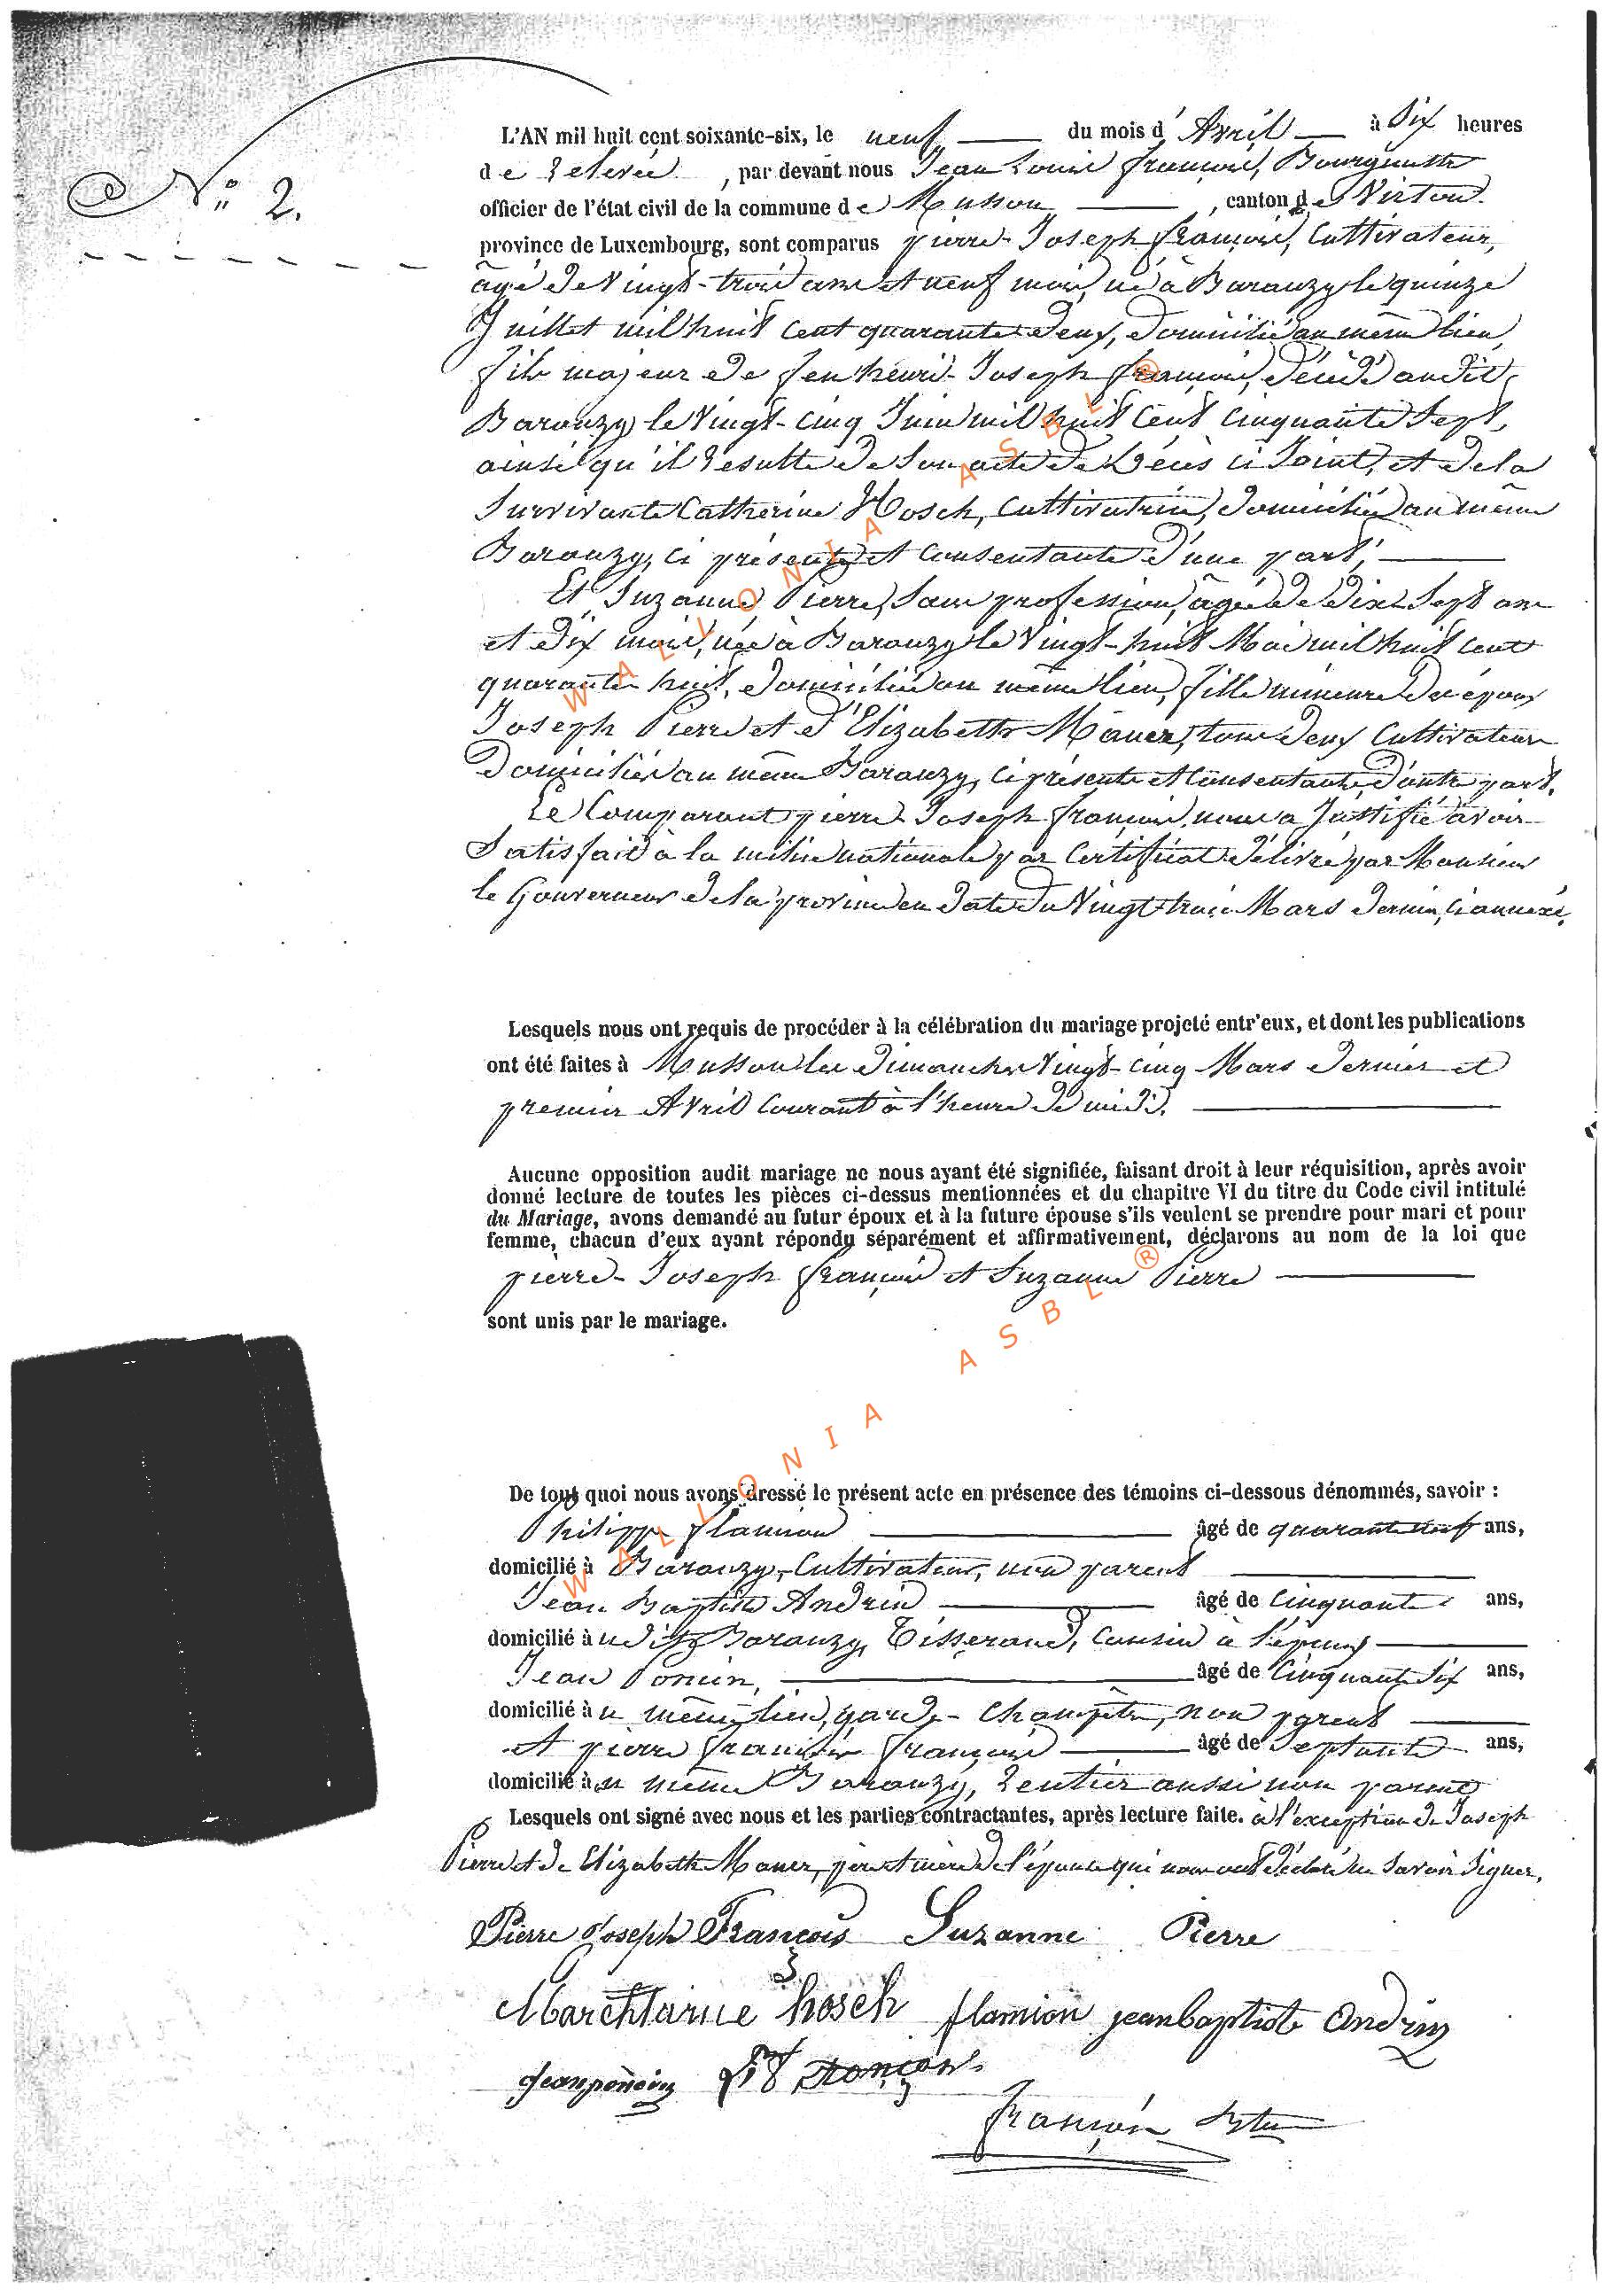 N° 2.
L'AN mil huit cent soixante-six, le neuf du mois d'Avril à Six heures
de relevée, par devant nous Jean Louis François, Bourgmestre
officier de l'état civil de la commune de Musson, canton de Virton
province de Luxembourg, sont comparus pierre-Joseph françois, Cultivateur,
âgé de Vingt-trois ans et neuf mois, né à Baranzy le quinze
Juillet mil huit cent quarante deux, domicilié au même lieu,
fils majeur de feu henri-Joseph françois, décédé audit
Baranzy le Vingt-cinq Juin mil huit cent cinquante Sept,
ainsi qu'il résulte de Son acte de Décès ci Joint, et de la
Survivante Catherine Hosch, Cultivatrice, domiciliée au même
Baranzy, ci présente et Consentante d'une part,
Et Suzanne Pierre, Sans profession, âgée de dix Sept ans
et dix mois, née à Baranzy le Vingt-huit Mai mil huit cent
quarante huit, domiciliée au même lieu, fille mineure des époux
Joseph Pierre et d'Elizabeth Maner, tous deux Cultivateurs
domiciliés au même Baranzy, ci présents et Consentants d'autre part.
Le Comparant pierre Joseph françois nous a Justifié avoir
Satisfait à la milice nationale par Certificat délivré par Monsieur
le Gouverneur de la province en date du Vingt trois Mars dernier, ci annexé.
Lesquels nous ont requis de procéder à la célébration du mariage projeté entr'eux, et dont les publications
ont été faites à Musson les dimanches Vingt-cinq Mars dernier et
premier Avril Courant à l'heure de midi.
Aucune opposition audit mariage ne nous ayant été signifiée, faisant droit à leur réquisition, après avoir
donné lecture de toutes les pièces ci-dessus mentionnées et du chapitre VI du titre du Code civil intitulé
du Mariage, avons demandé au futur époux et à la future épouse s'ils veulent se prendre pour mari et pour
femme, chacun d'eux ayant répondu séparément et affirmativement, déclarons au nom de la loi que
pierre-Joseph françois et Suzanne Pierre
sont unis par le mariage.
De tout quoi nous avons dressé le présent acte en présence des témoins ci-dessous dénommés, savoir :
Philippe flamion âgé de quarante neuf ans,
domicilié à Baranzy, Cultivateur, non parent
Jean Baptiste Andrin âgé de Cinquante ans,
domicilié à udit Baranzy, Tisserand, Cousin à l'époux
Jean Poncin, âgé de Cinquante Six ans,
domicilié à u même lieu, garde-champêtre, non parent
et pierre françois âgé de Septante ans,
domicilié à u même Baranzy, rentier aussi non parent
Lesquels ont signé avec nous et les parties contractantes, après lecture faite. à l'exception de Joseph
Pierre et de Elizabeth Maner, père et mère de l'épouse qui nous ont déclaré ne Savoir Signer.
Pierre Joseph François Suzanne Pierre
hosch flamion jeanbaptiste Andrin
Jeanponcin françois
françois
WALLONIA ASBL ®
WALLONIA ASBL ®